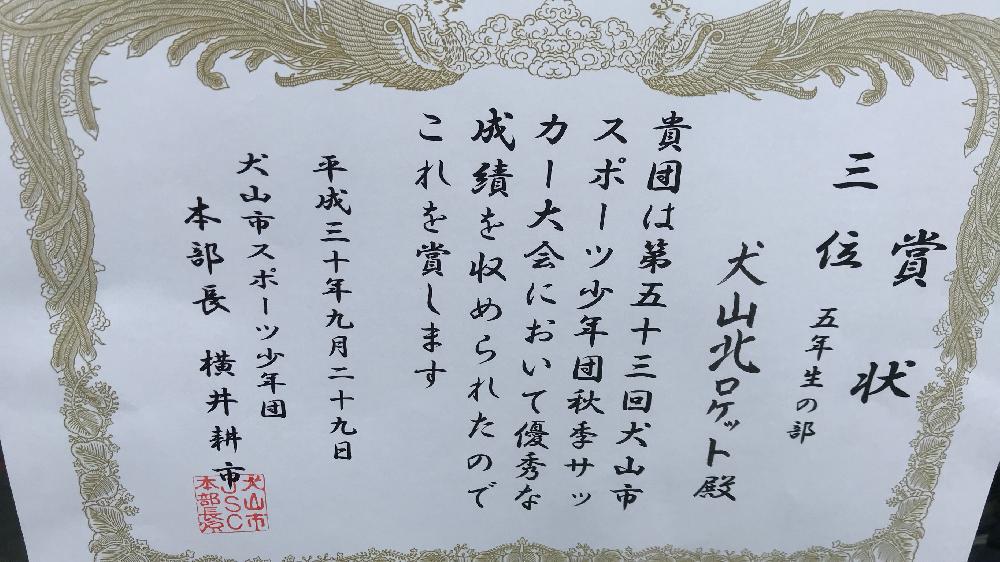 賞状
三位
五年生の部
犬山北ロケット殿
貴団は第五十三回犬山市
スポーツ少年団秋季サッ
カー大会において優秀な
成績を収められたので
これを賞します
平成三十年九月二十九日
犬山市スポーツ少年団
本部長 横井耕市
犬山市
JSC
本部長印